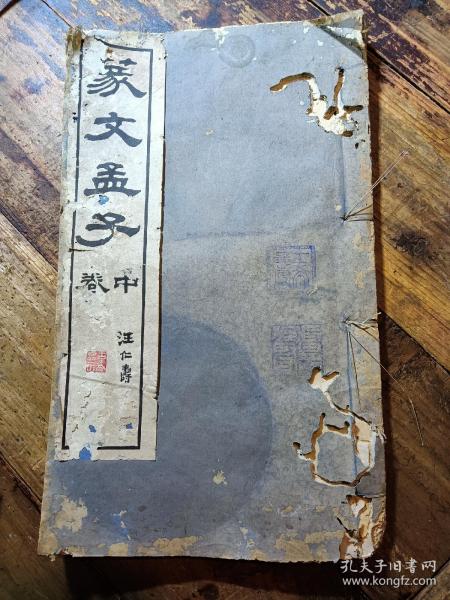 篆文孟子
中卷
汪仁壽
孔夫子旧书网
www.kongfz.com